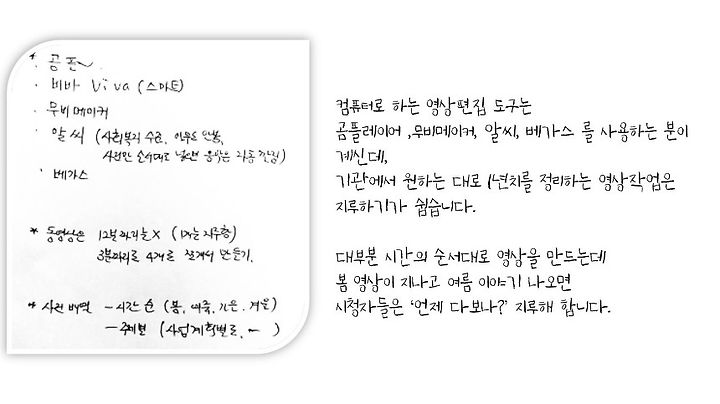 * 곰플~
· 비바 Viva (스마트)
· 무비메이커
· 알씨 (사회복지 수료,
사진만 순서대로 넣으면 음악은 자동 )
· 베가스
* 동영상은 12분짜리는 X (1개는 지루함)
3분짜리로 4개로 쪼개서 만들기.
* 사진 배열 - 시간 순 (봄, 여름, 가을, 겨울)
- 주제별 (사업계획별로, ~ )
컴퓨터로 하는 영상편집 도구는
곰플레이어 ,무비메이커, 알씨, 베가스 를 사용하는 분이
계신데,
기관에서 원하는 대로 1년치를 정리하는 영상작업은
지루하기가 쉽습니다.
대부분 시간의 순서대로 영상을 만드는데
봄 영상이 지나고 여름 이야기 나오면
시청자들은 '언제 다보나?' 지루해 합니다.